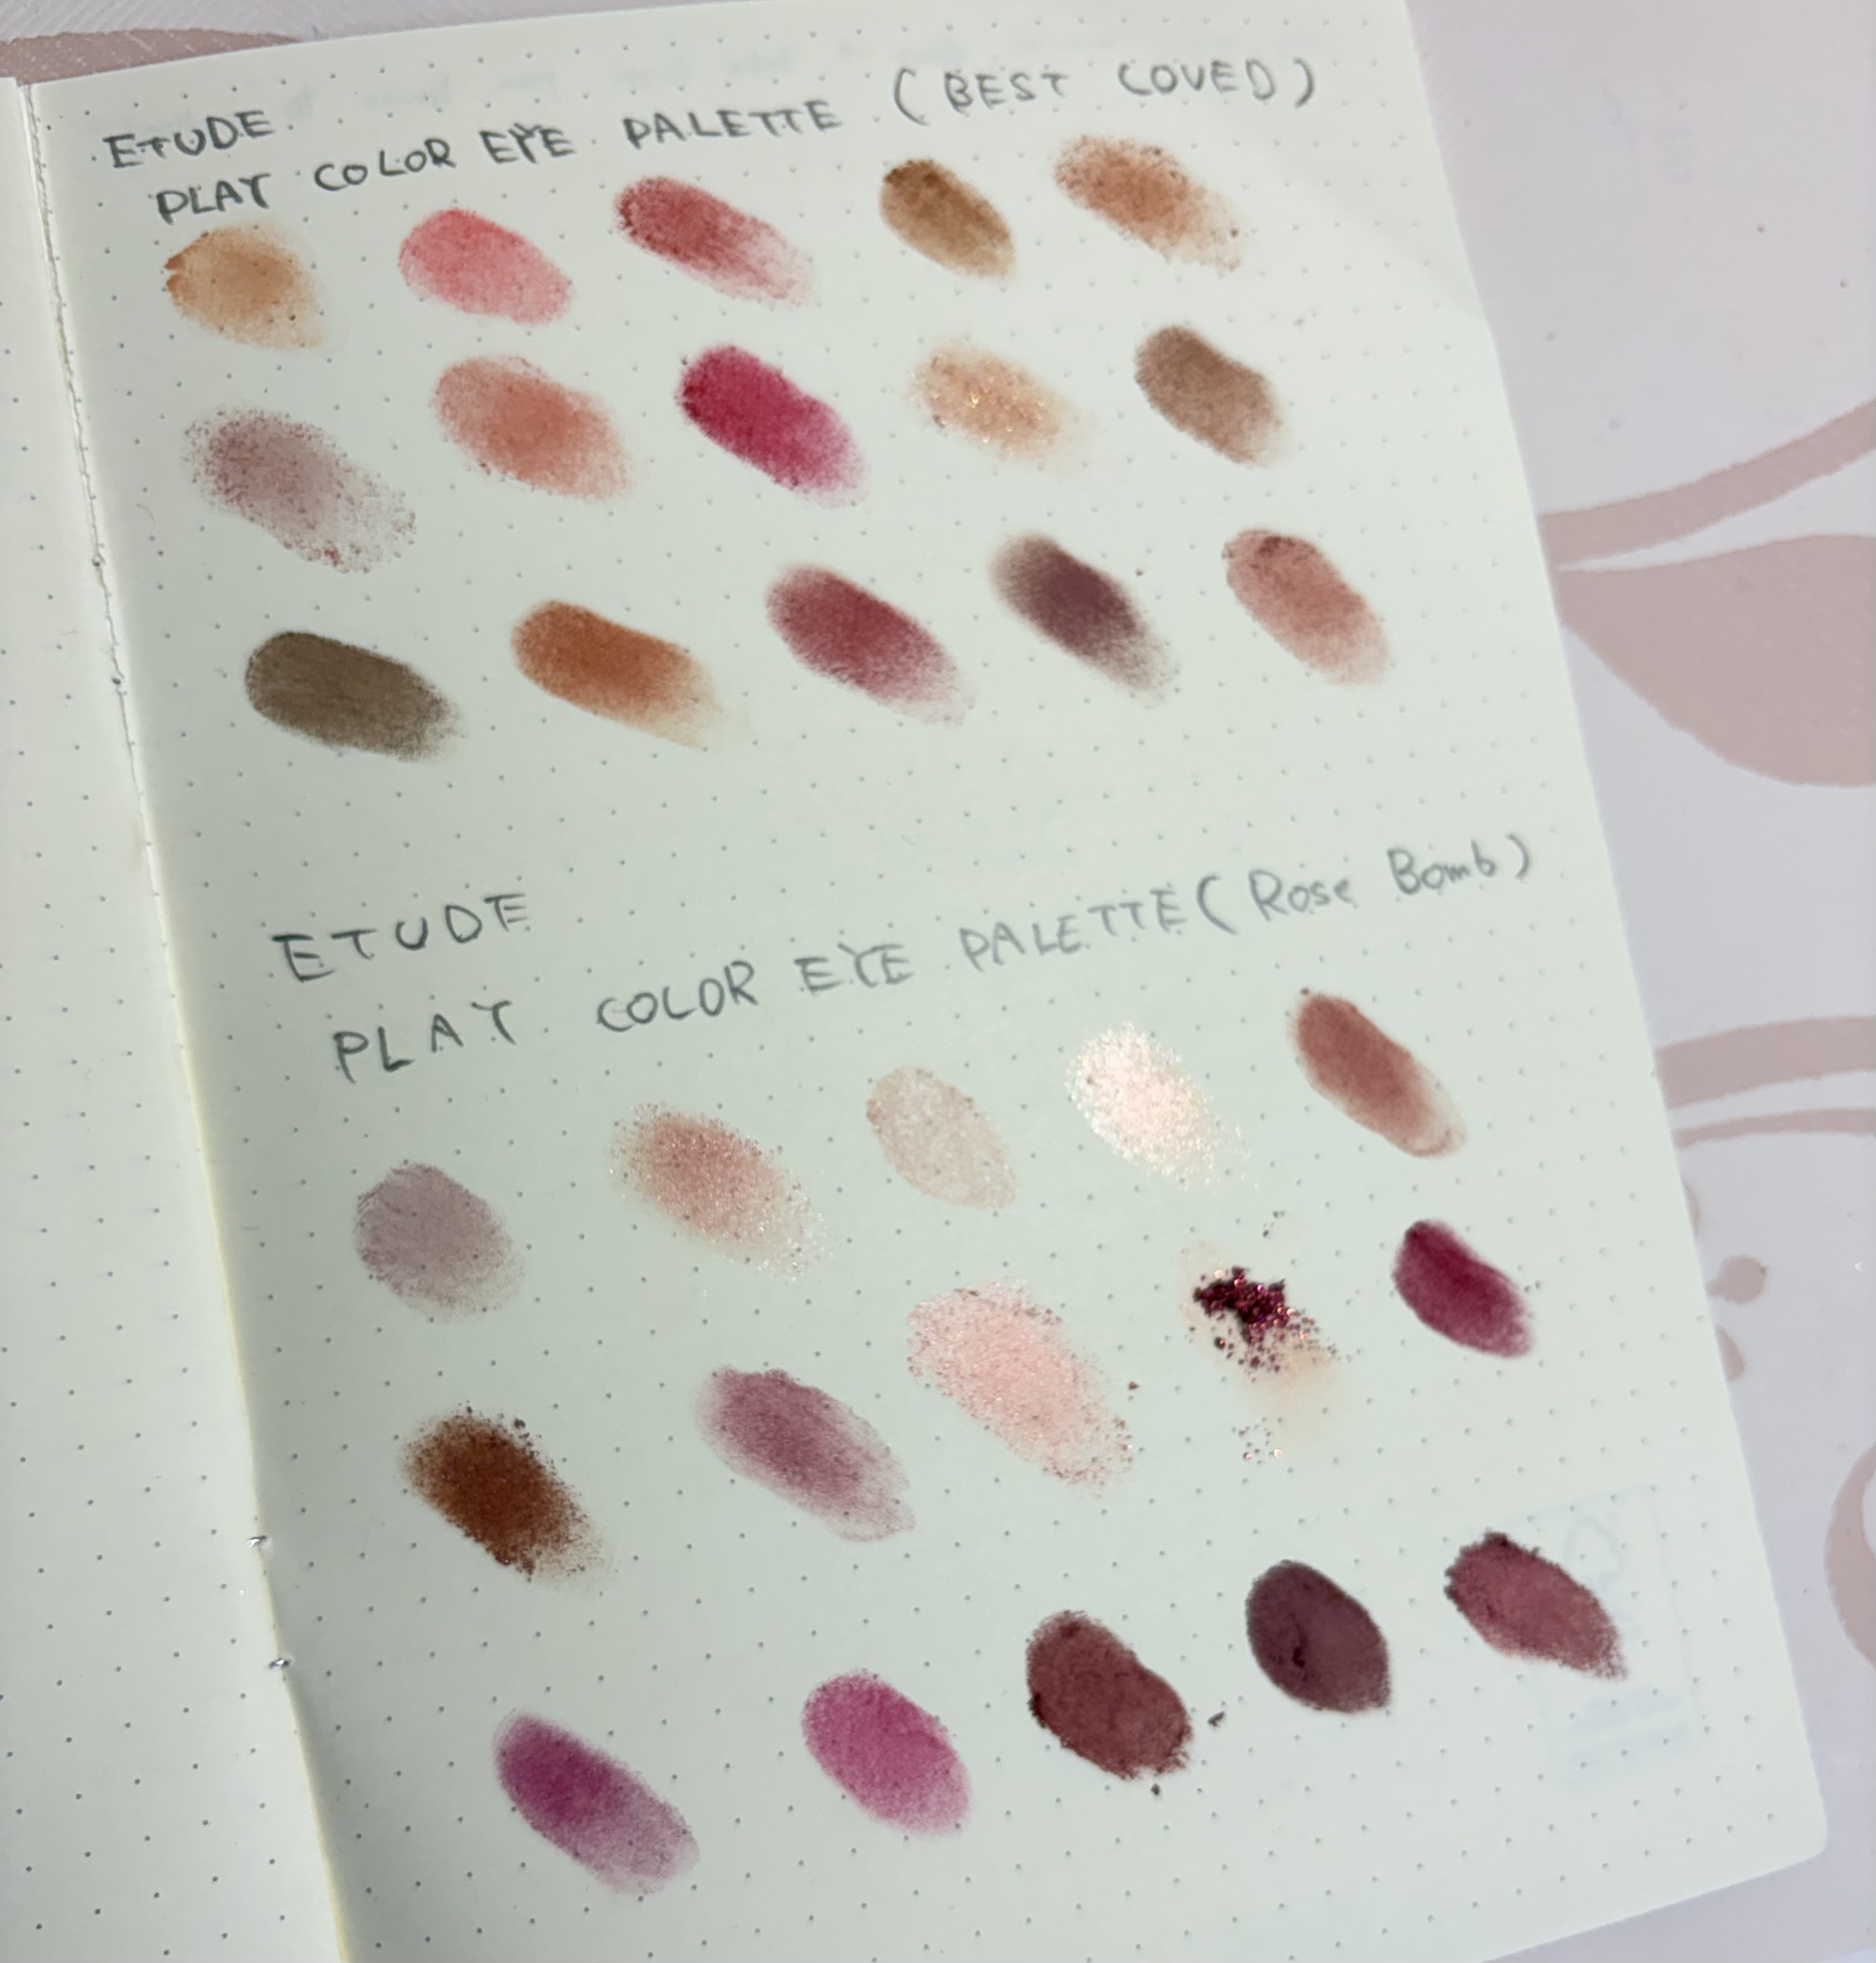 ETUDE
PLAY COLOR EYE PALETTE (BEST COVED)
ETUDE
PLAY COLOR EYE PALETTE (Rose Bomb)